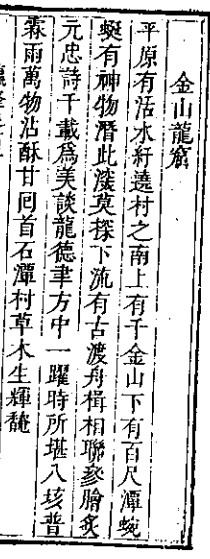 金山龍窟
平原有活水紆遶村之南上有千金山下有百尺潭蜿
蜒有神物潛此深莫探下流有古渡舟楫相聯參膾炙
元忠詩千載爲美談龍德聿方中一躍時所堪八垓普
霖雨萬物沾酥甘囘首石潭村草木生輝馣